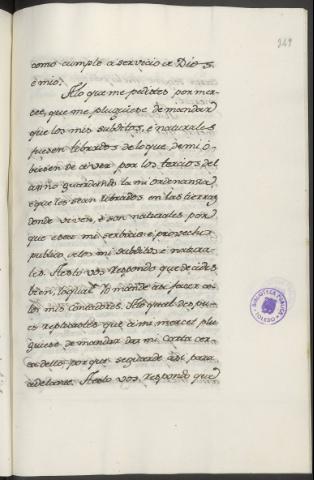 349
como cumple a servicio de Dios,
e mio.
Alo que me pedistes por mer-
ced, que me pluguiese de mandar
que los mis subditos, e naturales
fuesen librados de lo que de mi o-
biesen de aver por los tercios del
anno guardando la mi ordenanza,
e que les sean librados en las tierras
donde viven, e son naturales por
que es en mi serbicio e provecho
publico, e los mi subditos e natura-
les. A esto vos respondo que decides
bien, lo qual Yo mandé asi facer a
los mis contadores. A lo qual des, pu-
es replicastes que a mi merced plu-
guiese de mandar dar mi carta cer-
ca dello porque se guarde asi para
adelante. A esto vos respondo que
BIBLIOTECA PUBLICA
TOLEDO